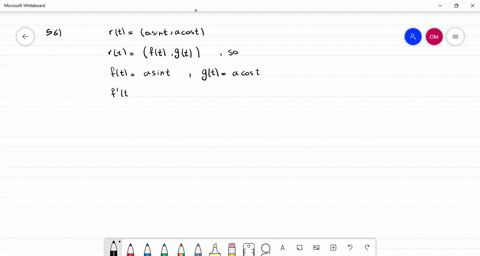 Microsoft Whiteboard
56) r(t) = (asint, acost)
r(t) = (f(t), g(t)) , so
f(t) = asint , g(t) = acost
f'(t
CM
A